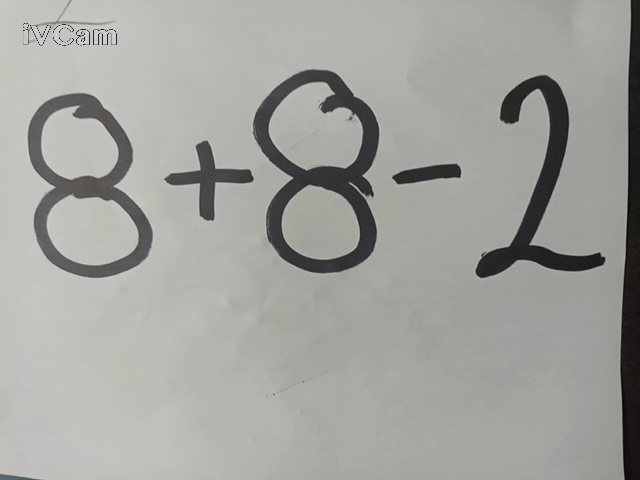 iVCam
8+8-2